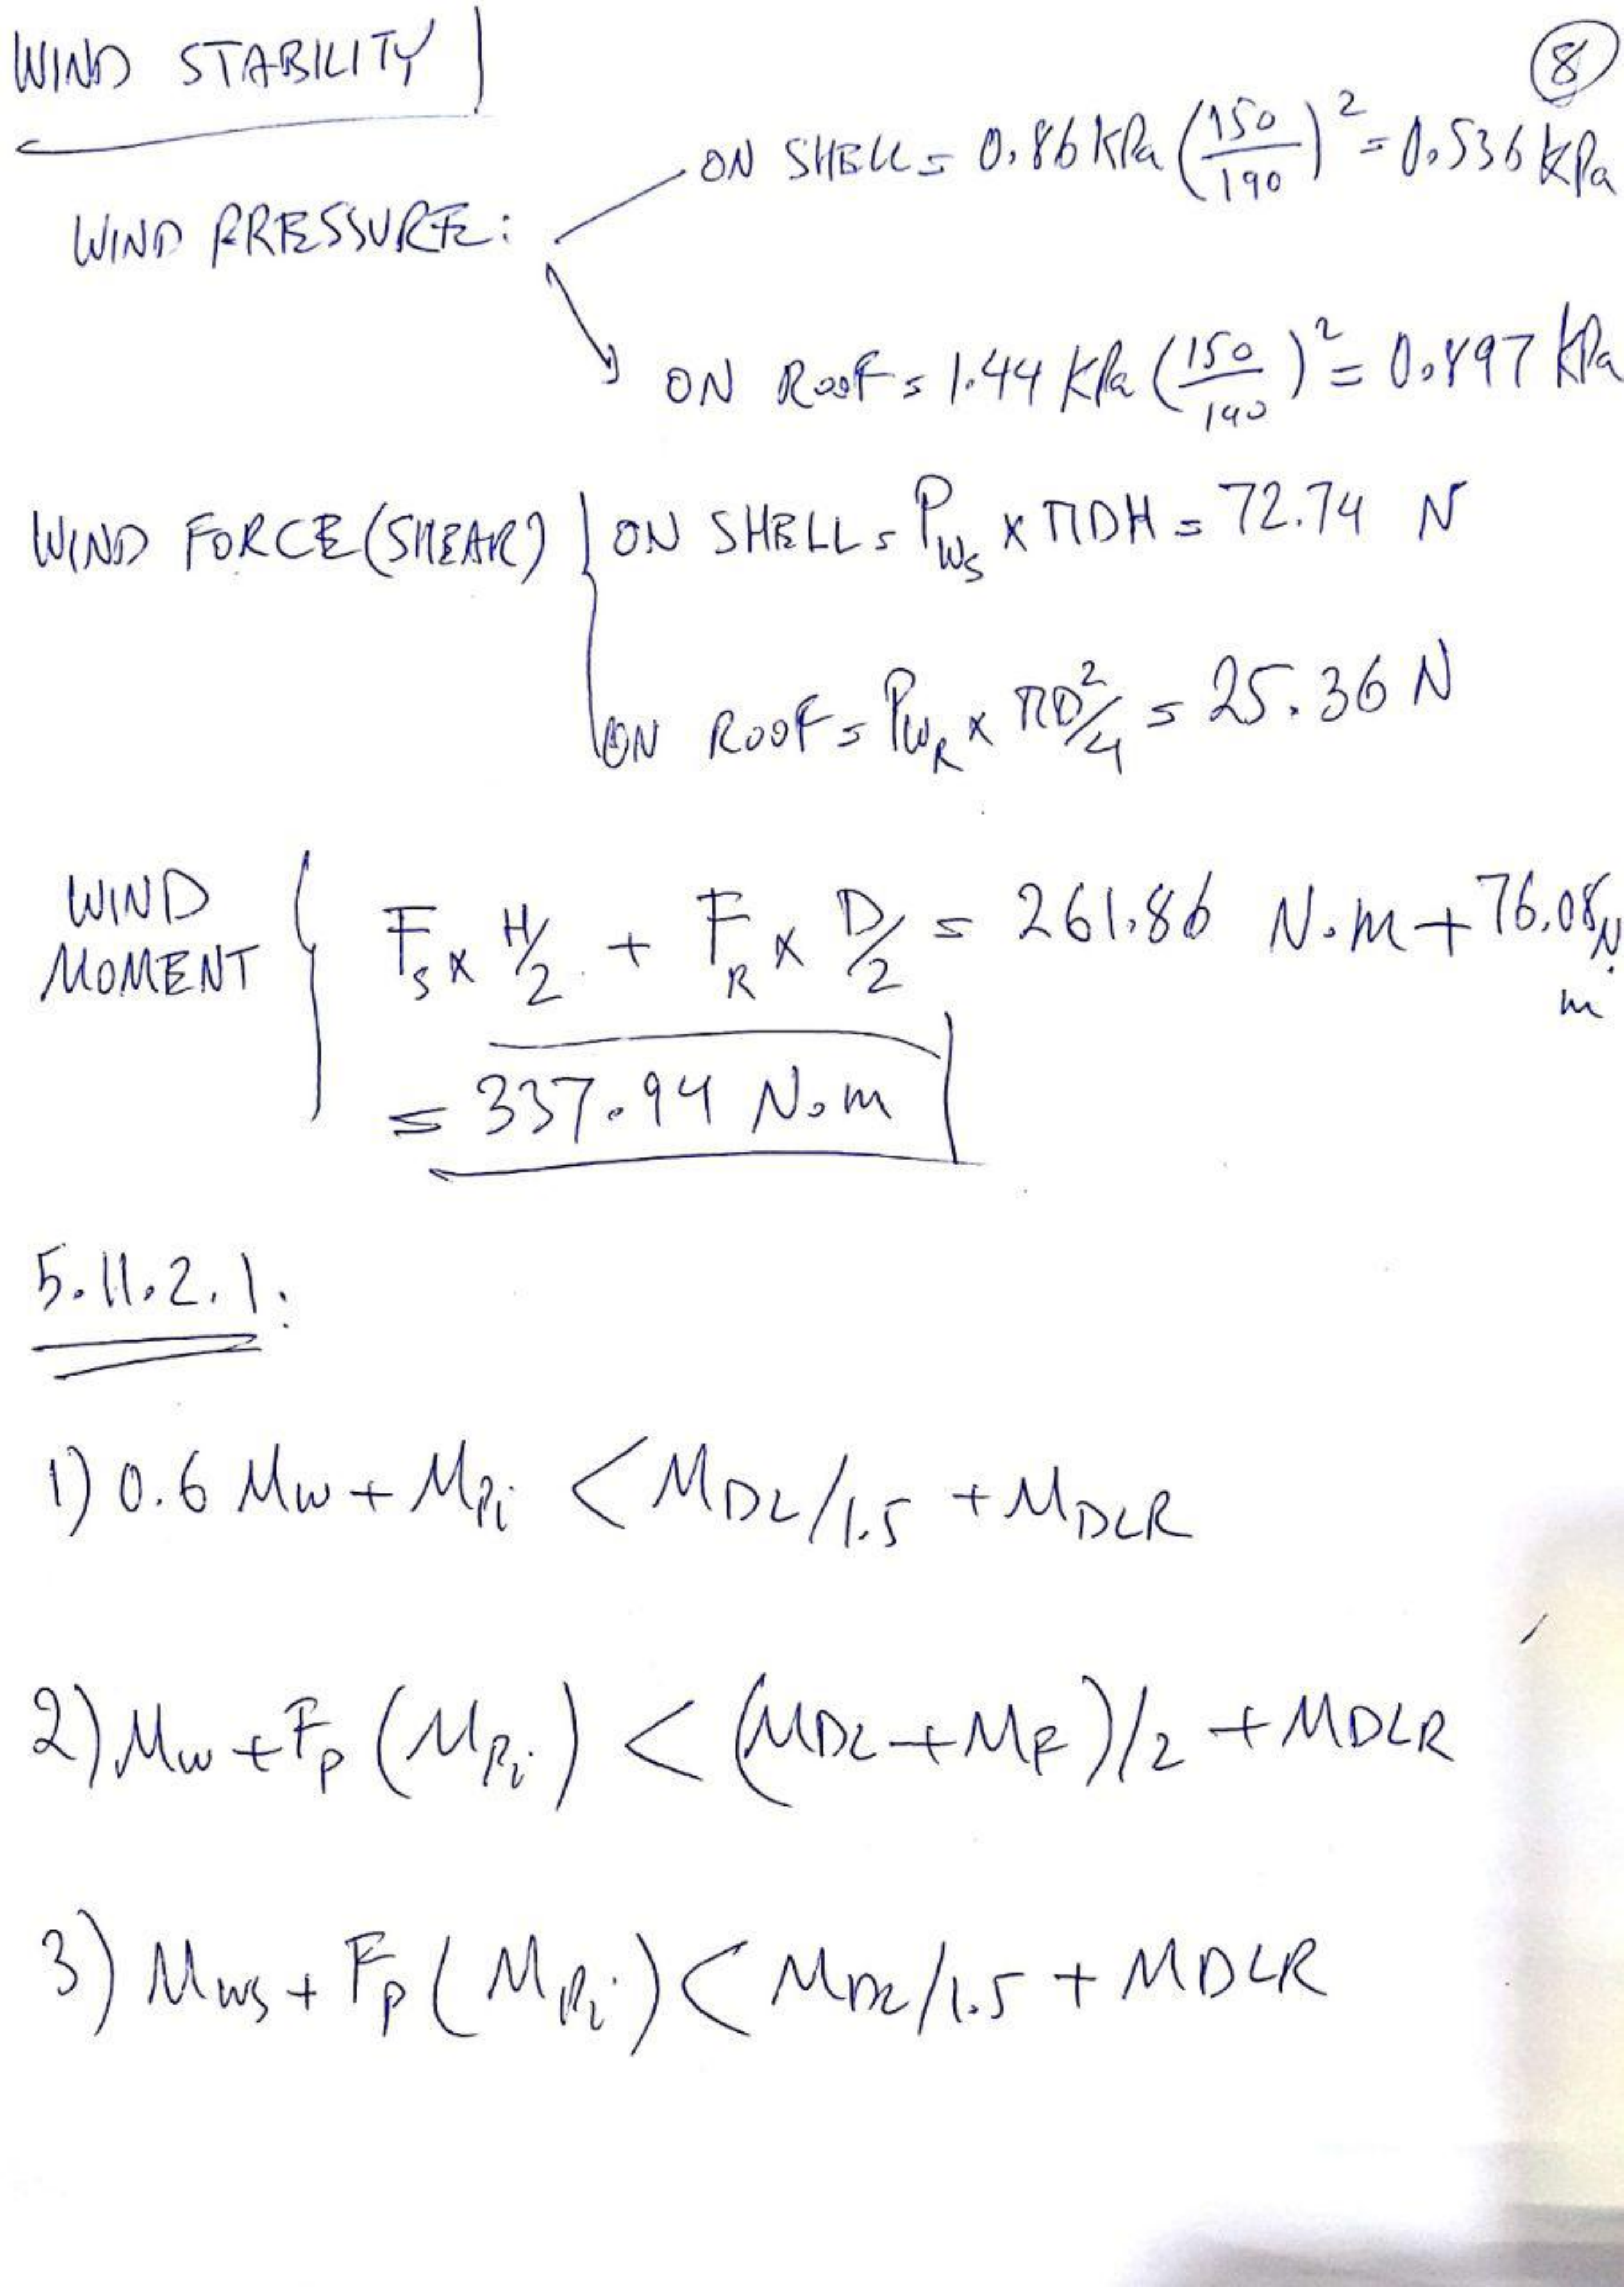 WIND STABILITY
8
WIND PRESSURE:
ON SHELL = 0.86 kPa (150/190)² = 0.536 kPa
ON ROOF = 1.44 kPa (150/190)² = 0.897 kPa
WIND FORCE (SHEAR)
ON SHELL = P_WS x πDH = 72.74 N
ON ROOF = P_WR x πD²/4 = 25.36 N
WIND MOMENT
F_S x H/2 + F_R x D/2 = 261.86 N.m + 76.08 N.m
= 337.94 N.m
5.11.2.1:
1) 0.6 Mw + M_Pi < M_DL/1.5 + M_DLR
2) Mw + F_P (M_Pi) < (M_DL + M_F)/2 + M_DLR
3) M_WS + F_P (M_Pi) < M_DL/1.5 + M_DLR